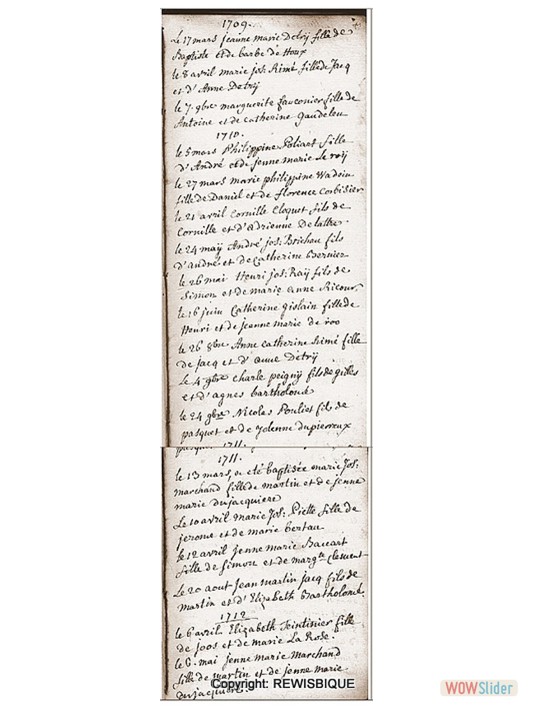 1709.
Le 17 mars jeanne marie Detrÿ fille de
Baptiste et de barbe de Houx
le 8 avril marie jos: Rimé fille de Jacq
et d'Anne Detrÿ
le 7. 9bre marguerite fauconier fille de
Antoine et de catherine Gaudeleu
1710.
le 5 mars Philippine Poliart fille
d'André et de jenne marie le roÿ
le 27 mars marie philippine Wadoin
fille de Daniel et de florence Corbisier
le 21 avril Cornille Cloquet fils de
Cornille et d'Adrienne Delattre
le 24 maÿ André jos: Brichau fils
d'andré et de Catherine Bernier
le 26 mai Henri jos: Raÿ fils de
Simon et de marie anne Ricour
le 16 juin Catherine gislain fille de
Henri et de jeanne marie de roo
le 26 8bre Anne catherine Rimé fille
de jacq et d'anne Detrÿ
le 4 9bre charle peigny fils de gilles
et d'agnes bartholomé
le 24 9bre Nicolas Pouliet fils de
pasquet et de Jdenne dupierreux
1711.
le 13 mars, a eté baptisée marie jos:
marchand fille de martin et de jenne
marie dujacquiere
Le 10 avril marie jos: Piette fille de
jerome et de marie bertau
le 12 avril jenne marie Baccart
fille de simon et de margte Clement
Le 20 aout jean martin jacq fils de
martin et d'Elizabeth Bartholomé
1712
le 6 avril Elizabeth Scintinier fille
de joos et de marie La Rose.
le 6. mai jenne marie Marchand
fille de martin et de jenne marie
dujacquiere
Copyright: REWISBIQUE
WOWSlider